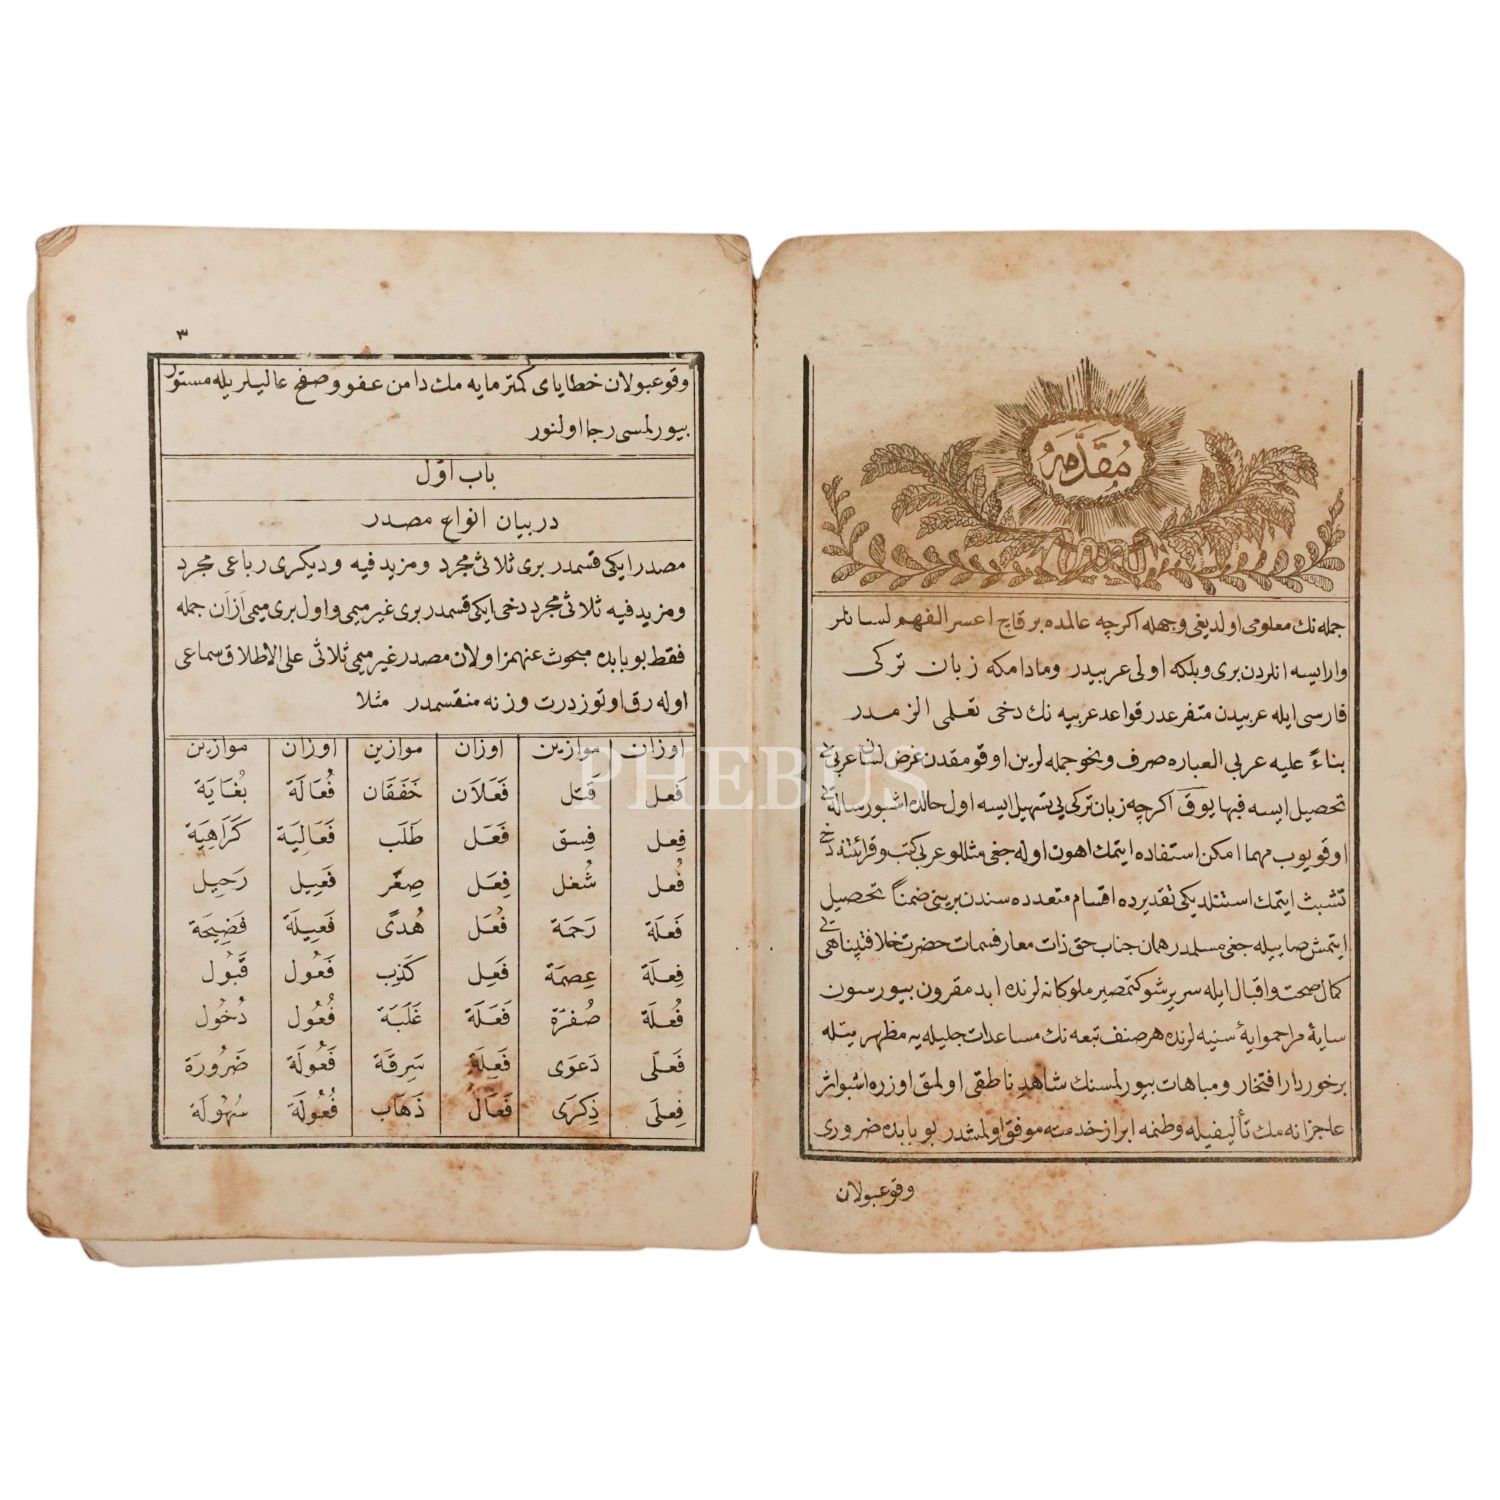 مُقَدَّمَه
جمله نك معلومى اولديغى وجهله اكرچه عالمده برقاچ اعسر الفهم لسانلر
وارايسه انلردن برى وبلكه اولى عربيدر ومادامكه زبان تركى
فارسى ايله عربيدن متفرعدر قواعد عربيه نك دخى تعلمى الزمدر
بناءً عليه عربى العباره صرف ونحو جمله لرين اوقومقدن غرض لسان عربى يى
تحصيل ايسه فبها يوق اكرچه زبان تركى يى تسهيل ايسه اول حالده اشبو رساله يى
اوقويوب مهما امكن استفاده ايتمك اهون اوله جغى مثللو عربى كتب وقرائتنه دخى
تشبث ايتمك استنلديكى تقديرده اقسام متعدده سندن بريني ضمناً تحصيل
ايتمش صاييله جغى مسلمدر همان جناب حق ذات معارفسمات حضرت خلافتپناهى يى
كمال صحت واقبال ايله سرير شوكتمصير ملوكانه لرنده ابد مقرون بيورسون
سايهٔ مراحموايهٔ سنيه لرنده هر صنف تبعه نك مساعدات جليله يه مظهريتله
برخوردار افتخار ومباهات بيورلمسنك شاهد ناطقى اولمق اوزره اشبو اثر
عاجزانه مك تأليفيله وطنمه ابراز خدمته موفق اولمشدر بو بابده ضرورى
وقوعبولان
٣
وقوعبولان خطاياى كمترمايه مك دامن عفو وصفح عاليلريله مستور
بيورلمسى رجا اولنور
باب اوّل
در بيان انواع مصدر
مصدر ايكى قسمدر برى ثلاثى مجرد ومزيد فيه وديكرى رباعى مجرد
ومزيد فيه ثلاثى مجرد دخى ايكى قسمدر برى غير ميمى واول برى ميمى ازان جمله
فقط بو بابده مبحوث عنهمز اولان مصدر غير ميمى ثلاثى على الاطلاق سماعى
اوله رق اوتوز درت وزنه منقسمدر مثلا
اوزان موازين اوزان موازين اوزان موازين
فَعل قَتل فَعَلَان خَفَقَان فُعَالَة بُغَايَة
فِعل فِسق فَعَل طَلَب فَعَالِيَة كَرَاهِيَة
فُعل شُغل فِعَل صِغَر فَعِيل رَحِيل
فَعلَة رَحمَة فُعَل هُدًى فَعِيلَة فَضِيحَة
فِعلَة عِصمَة فَعِل كَذِب فَعُول قَبُول
فُعلَة صُفرَة فَعَلَة غَلَبَة فُعُول دُخُول
فَعلَى دَعوَى فَعِلَة سَرِقَة فَعُولَة ضَرُورَة
فِعلَى ذِكرَى فَعَال ذَهَاب فُعُولَة سُهُولَة
PHEBUS